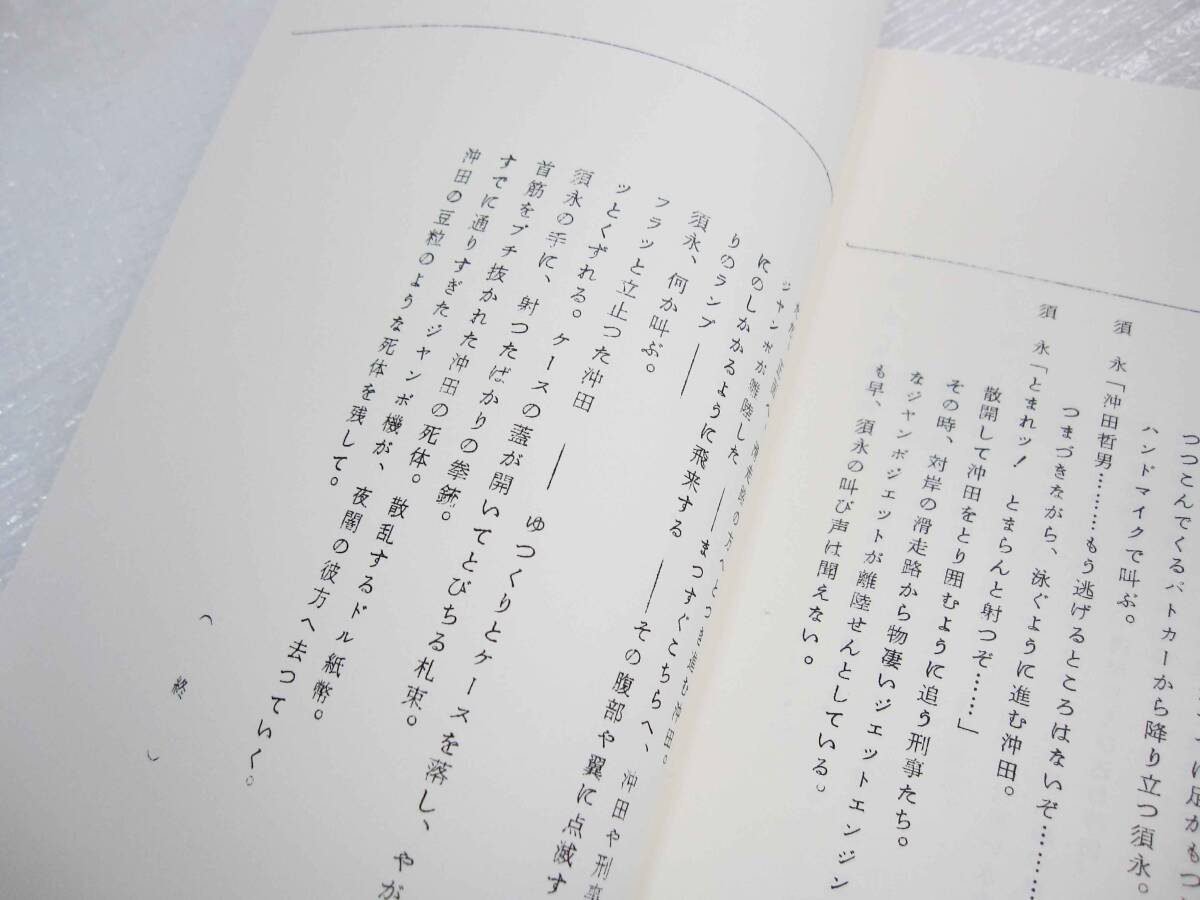 つつこんでくるパトカーから降り立つ須永。
ハンドマイクで叫ぶ。
須　永「沖田哲男………もう逃げるところはないぞ………
つまづきながら、泳ぐように進む沖田。
須　永「とまれッ！　とまらんと射つぞ……」
散開して沖田をとり囲むように追う刑事たち。
その時、対岸の滑走路から物凄いジェットエンジン
なジャンボジェットが離陸せんとしている。
も早、須永の叫び声は聞えない。
の方へとつき進む沖田。
ジャンボが離陸した――まつすぐこちらへ、沖田や刑事
にのしかかるように飛来する――その腹部や翼に点滅す
りのランプ――
須永、何か叫ぶ。
フラッと立止つた沖田――ゆつくりとケースを落し、やが
ッとくずれる。ケースの蓋が開いてとびちる札束。
須永の手に、射つたばかりの拳銃。
首筋をブチ抜かれた沖田の死体。散乱するドル紙幣。
すでに通りすぎたジャンボ機が、夜闇の彼方へ去つていく。
沖田の豆粒のような死体を残して。
（　終　）